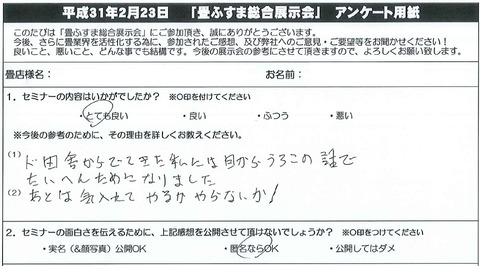 平成31年2月23日 「畳ふすま総合展示会」 アンケート用紙
このたびは「畳ふすま総合展示会」にご参加頂き、誠にありがとうございます。
今後、さらに畳業界を活性化する為に、参加されたご感想、及び弊社へのご意見・ご要望等をお聞かせください！
良いこと、悪いこと、どんな事でも結構です。今後の展示会の参考にさせて頂きますので、よろしくお願い致します。
畳店様名： お名前：
1．セミナーの内容はいかがでしたか？ ※○印を付けてください
・とても良い ・良い ・ふつう ・悪い
※今後の参考のために、その理由を詳しくお教えください。
(1) ド田舎からでてきた私には目からうろこの話で
たいへんためになりました
(2) あとは気入れて やるか やらないか！
2．セミナーの面白さを伝えるために、上記感想を公開させて頂けないでしょうか？ ※○印をつけてください
・実名（&顔写真）公開OK ・匿名ならOK ・公開してはダメ